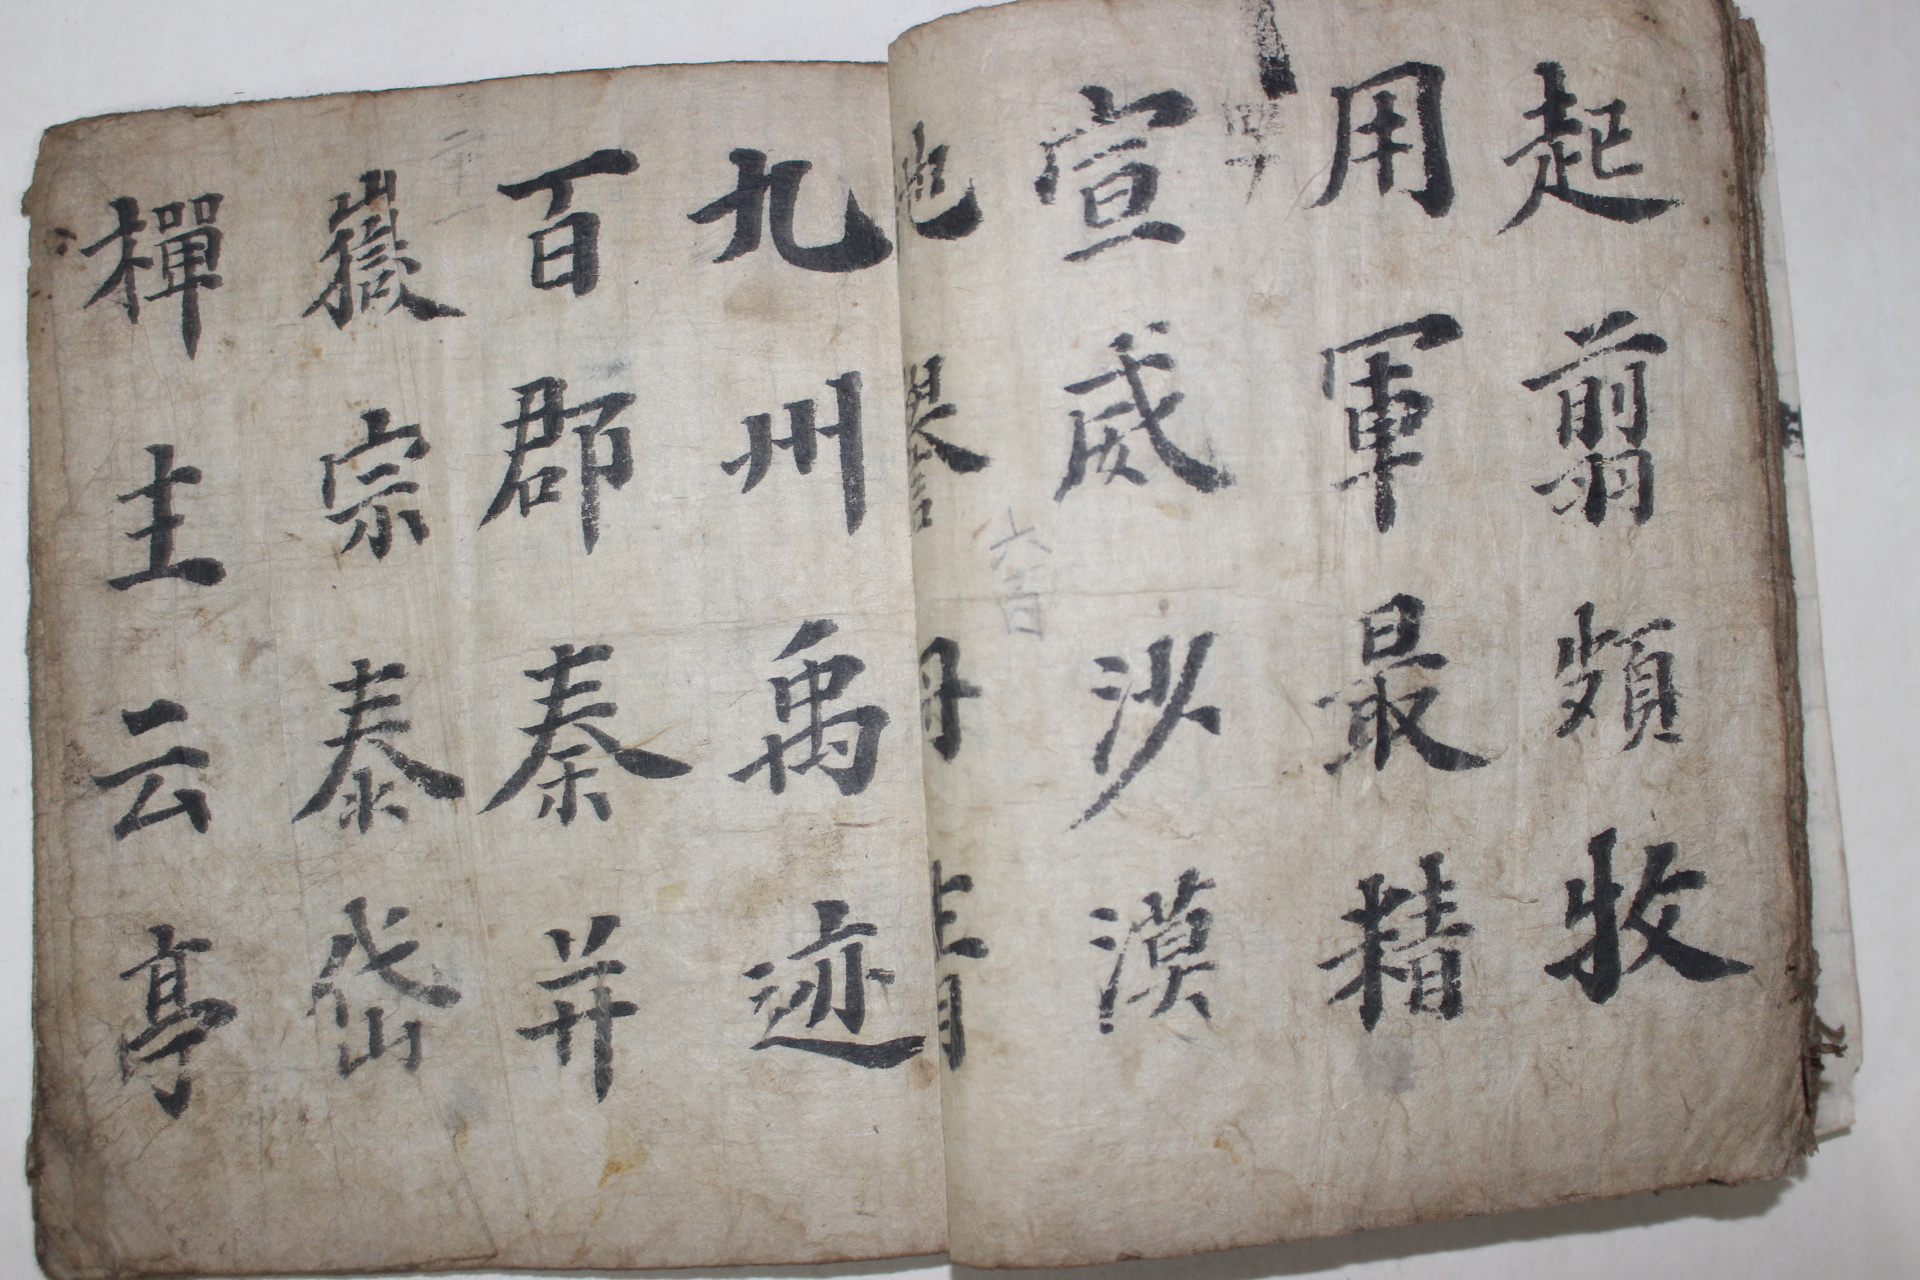 起翦頗牧
用軍最精
宣威沙漠
馳譽丹青
九州禹迹
百郡秦并
嶽宗泰岱
禪主云亭